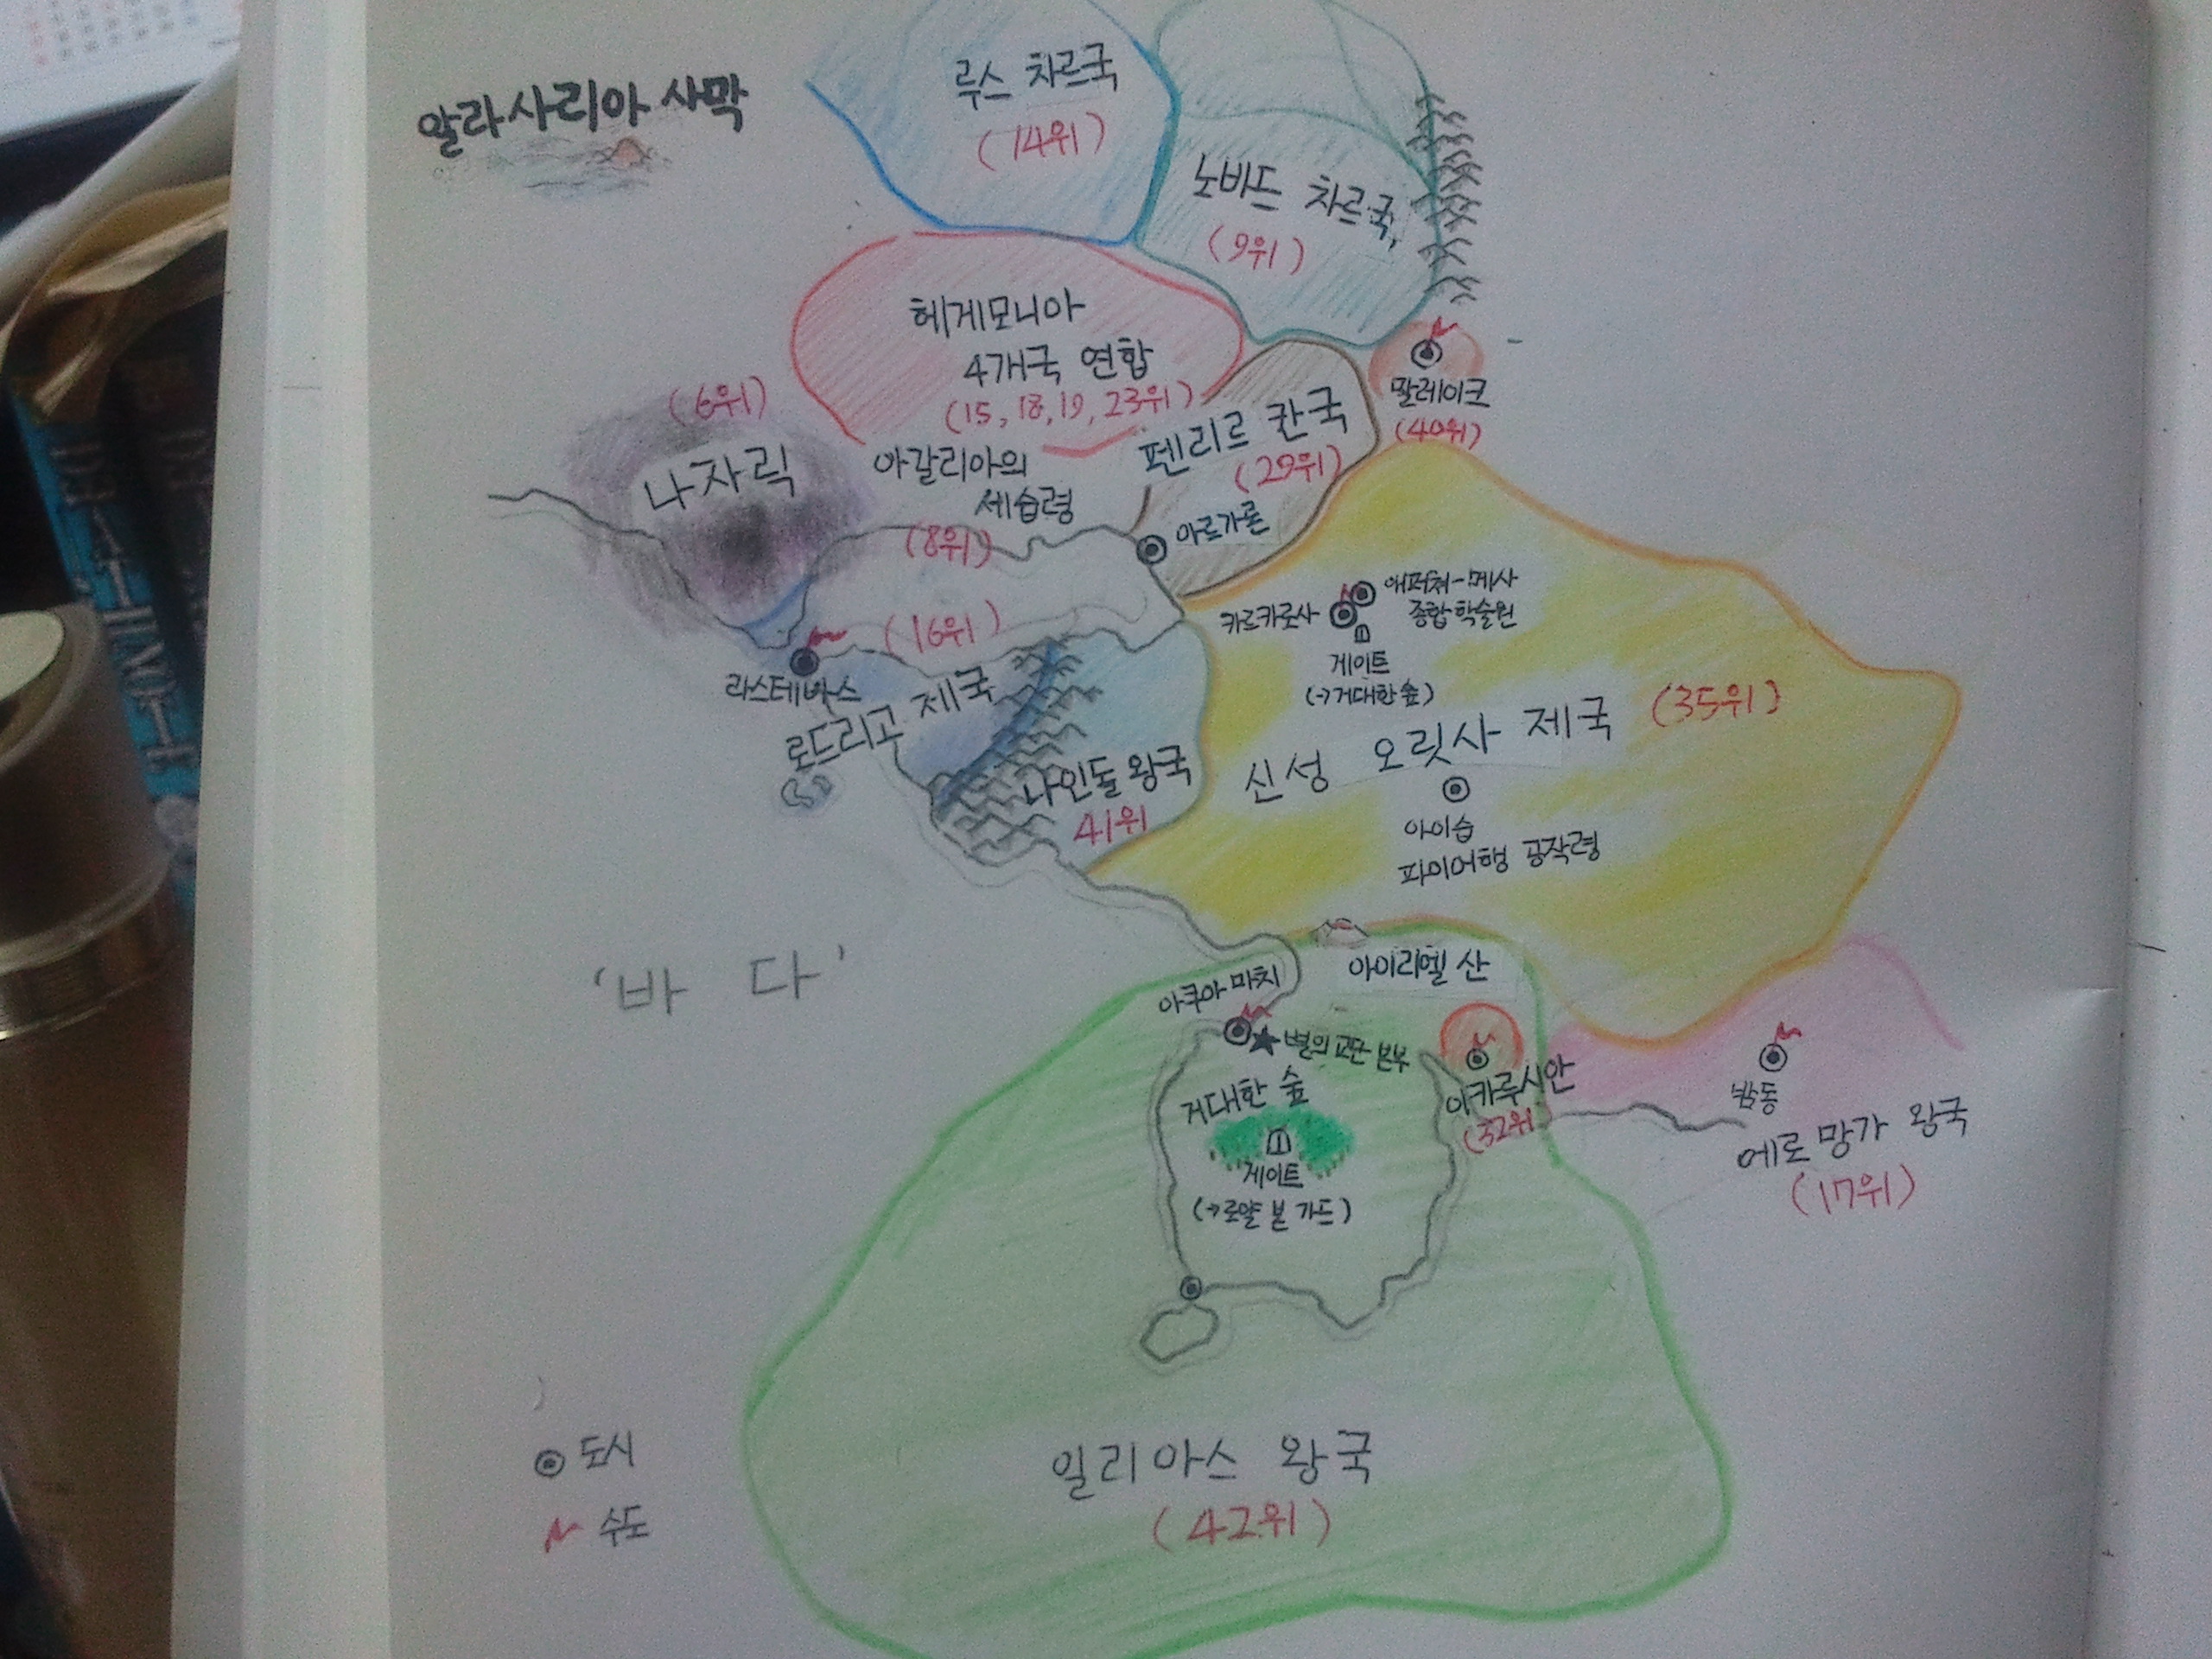 알라사리아 사막
루스 차르국
(14위)
노바드 차르국,
(9위)
헤게모니아
4개국 연합
(15, 18, 19, 23위)
(6위)
나자릭
아갈리아의
세습령
(8위)
펜리르 칸국
(29위)
말레이크
(40위)
아르가론
(16위)
라스테바스
로드리고 제국
나인돌 왕국
41위
카르카로사
애퍼쳐-메사
종합학술원
게이트
(→거대한 숲)
신성 오릿사 제국 (35위)
아이습
파이어행 공작령
'바 다'
아이리엘 산
아쿠아 마치
별의 교단 본부
이카루시안
(32위)
거대한 숲
게이트
(→로얄 본 가드)
밤동
에로망가 왕국
(17위)
일리아스 왕국
(42위)
도시
수도